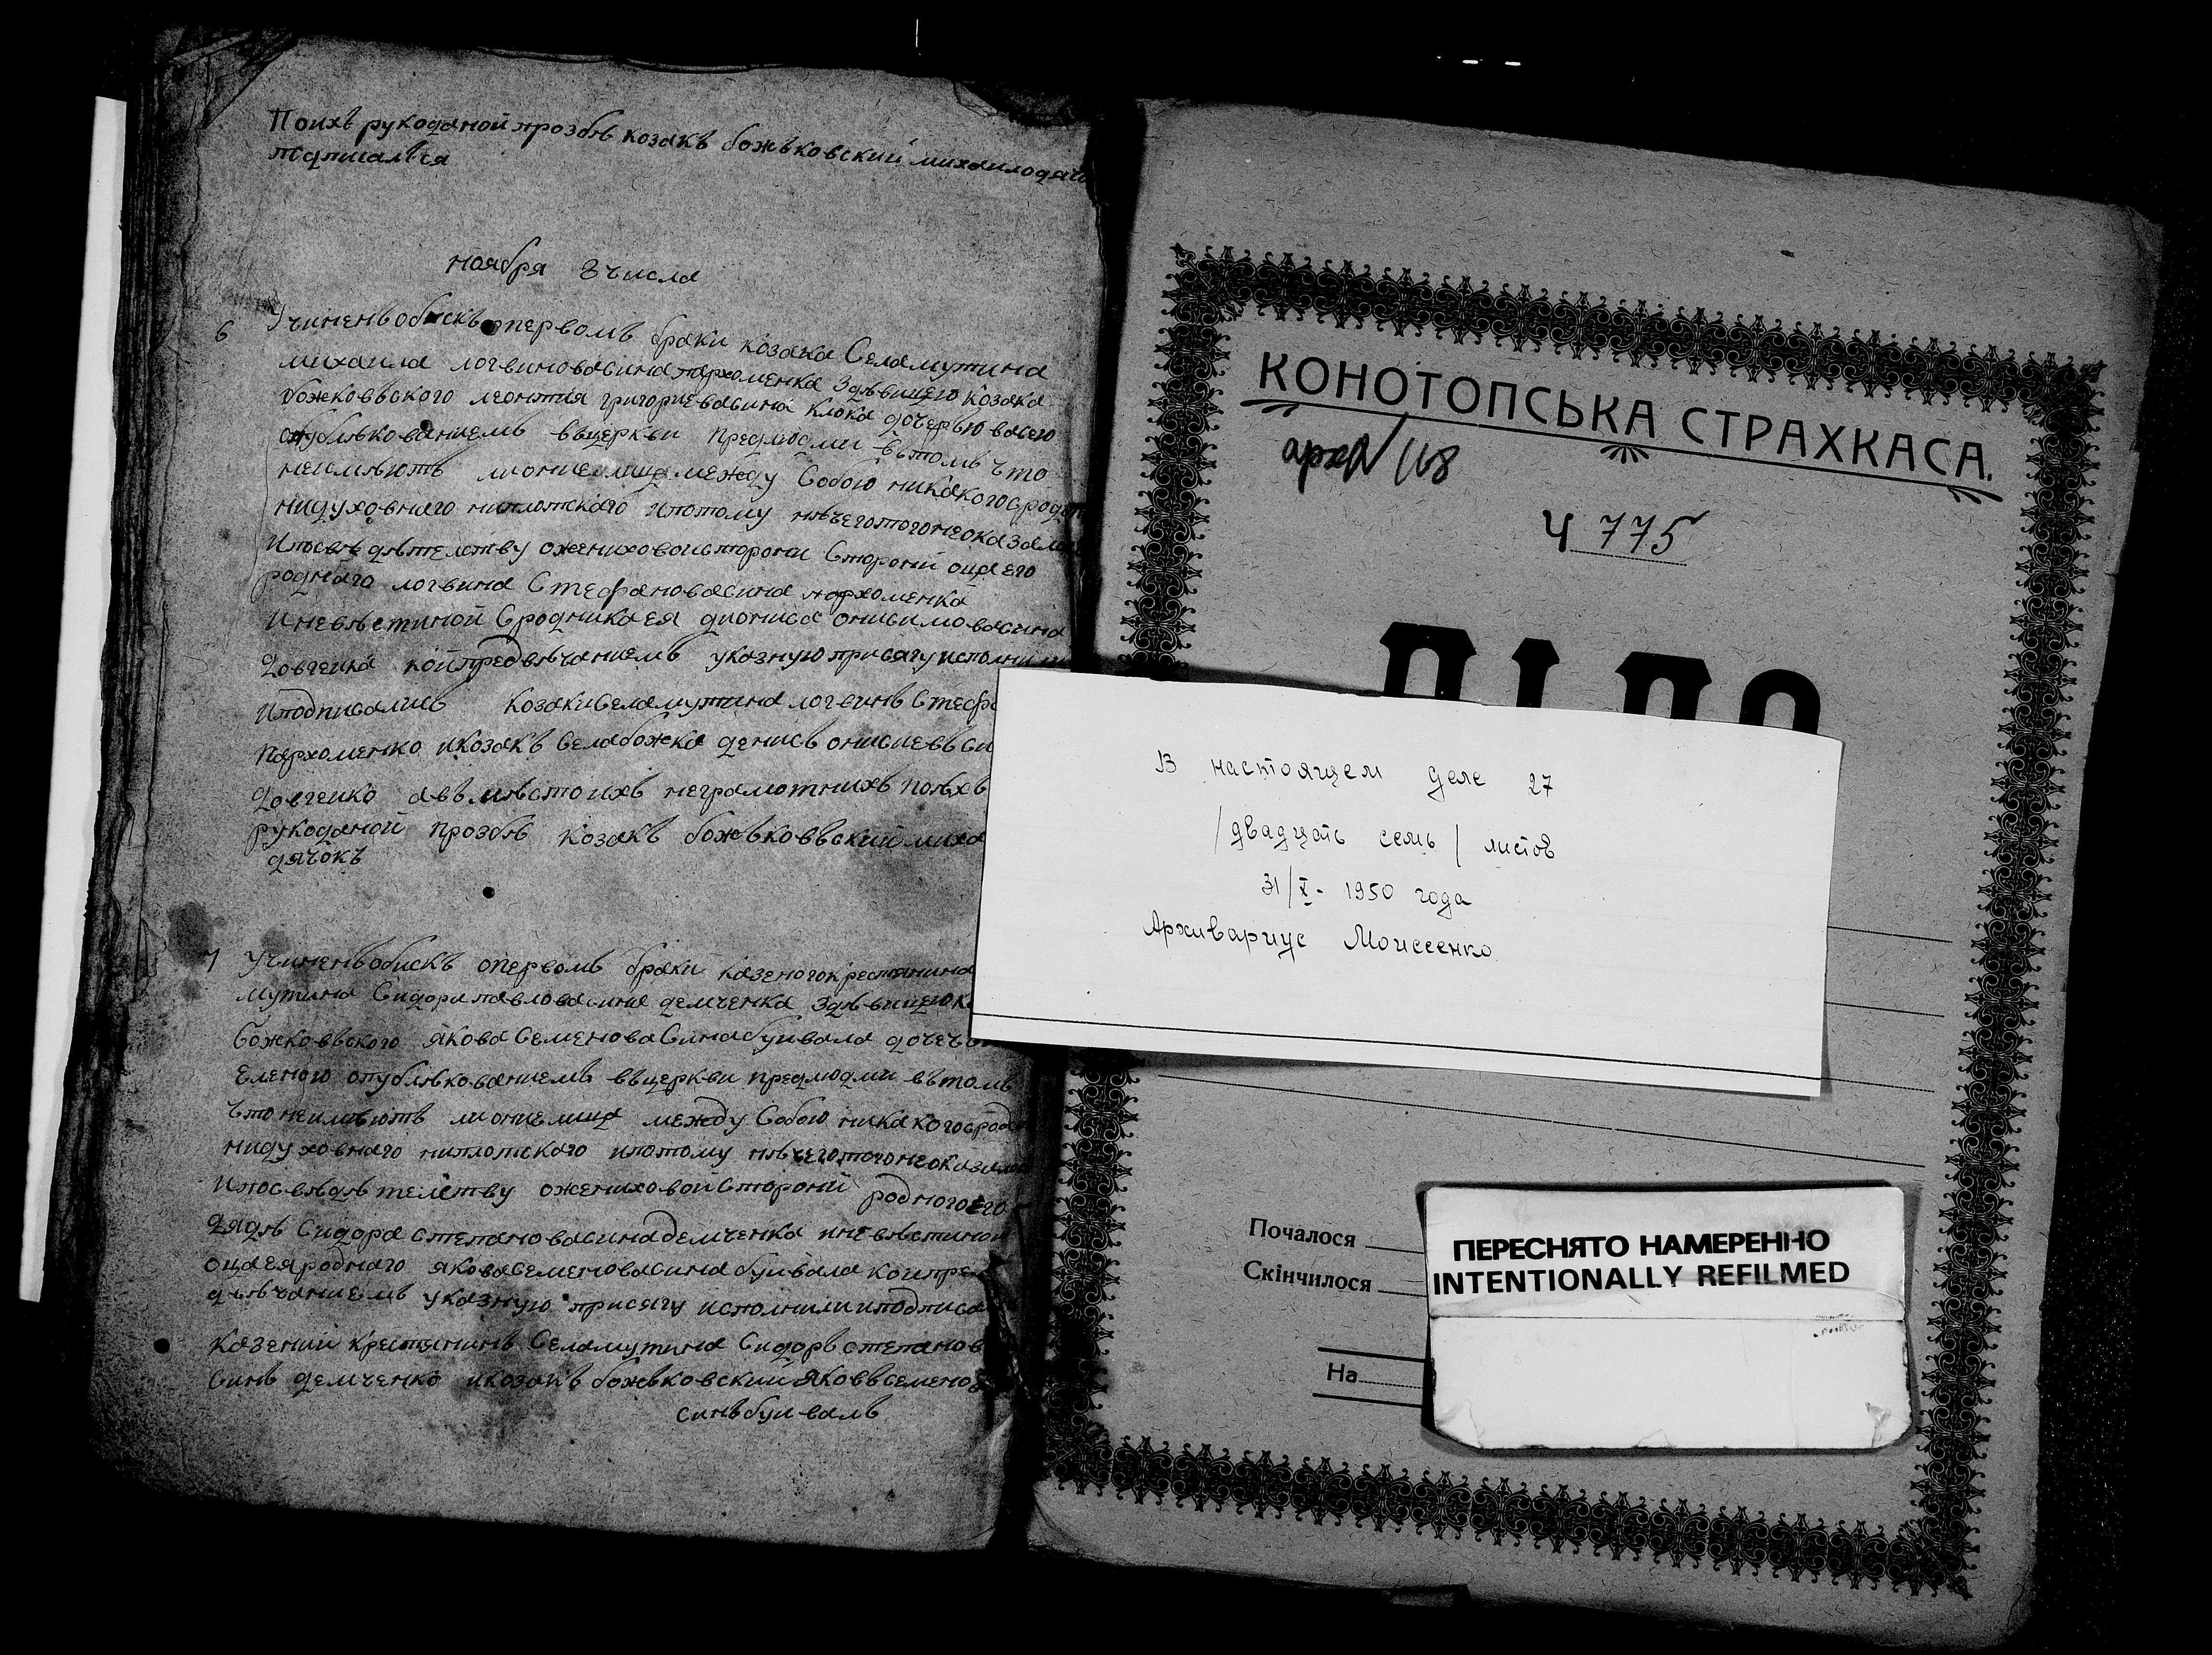 Поихъ рукоданой прозбѣ козакъ божъковский михаилодячо
подписалъся
ноября 8 числа
6 Учиненъобискъ опервомъ браки козака Селамутина
михаила логвиновасина пархоменка здѣвицею козака
божковъского леонтия григориевасина клока дочерью
опублѣкованиемъ въцеркви предлюдми вътомъ что
неимѣютъ между Собою никакогосрод
нидуховнаго ниплотскаго ипотому нѣчеготогонеоказало
Ипосвѣдѣтелству оженховойсторони Сторони оцаего
роднаго логвина Стефановасина пархоменка
Иневѣстиной Сродникаея диониса онисимовасина
довгенка койпредвѣчаниемъ указнуюприсягуисполнили
Иподписались козакиселамутина логвинъ Стефа
пархоменко икозакъ Селабожка денисъ
довгенко авъмѣстоихъ неграмотнихъ поихъ
рукоданой прозбѣ козакъ божъковъский миха
дячокъ
7 Учиненъобискъ опервомъ браки казеногокрестянина
мутина Сидорапавловасина демченка здѣвицеюк
божковъского якова СеменоваСинабуивала дочеръ
Еленою опублѣкованиемъ въцеркви предлюдми вътомъ
Чтонеимѣютъ между Собою никакогосрод
нидуховнаго ниплотскаго ипотому нѣчеготогонеоказало
Ипосвѣдѣтелству оженховойСторони родногоего
дядѣ Сидора степановасинадемченка иневѣстиной
оцаеяроднаго яковасеменовасина буивала коипре
двѣчаниемъ указную присягу исполнилииподписа
казений крестянинъ Селамутина Сидоръ степановъ
Синъ демченко икозакъ божъковский Яковъсеменовъ
синъбуивалъ
КОНОТОПСЬКА СТРАХКАСА.
арх № 118
Ч 775
ДІЛО
В настоящем деле 27
/двадцать семь/ листов
31/X- 1950 года
Архивариус Моисеенко
Почалося
Скінчилося
На
ПЕРЕСНЯТО НАМЕРЕННО
INTENTIONALLY REFILMED